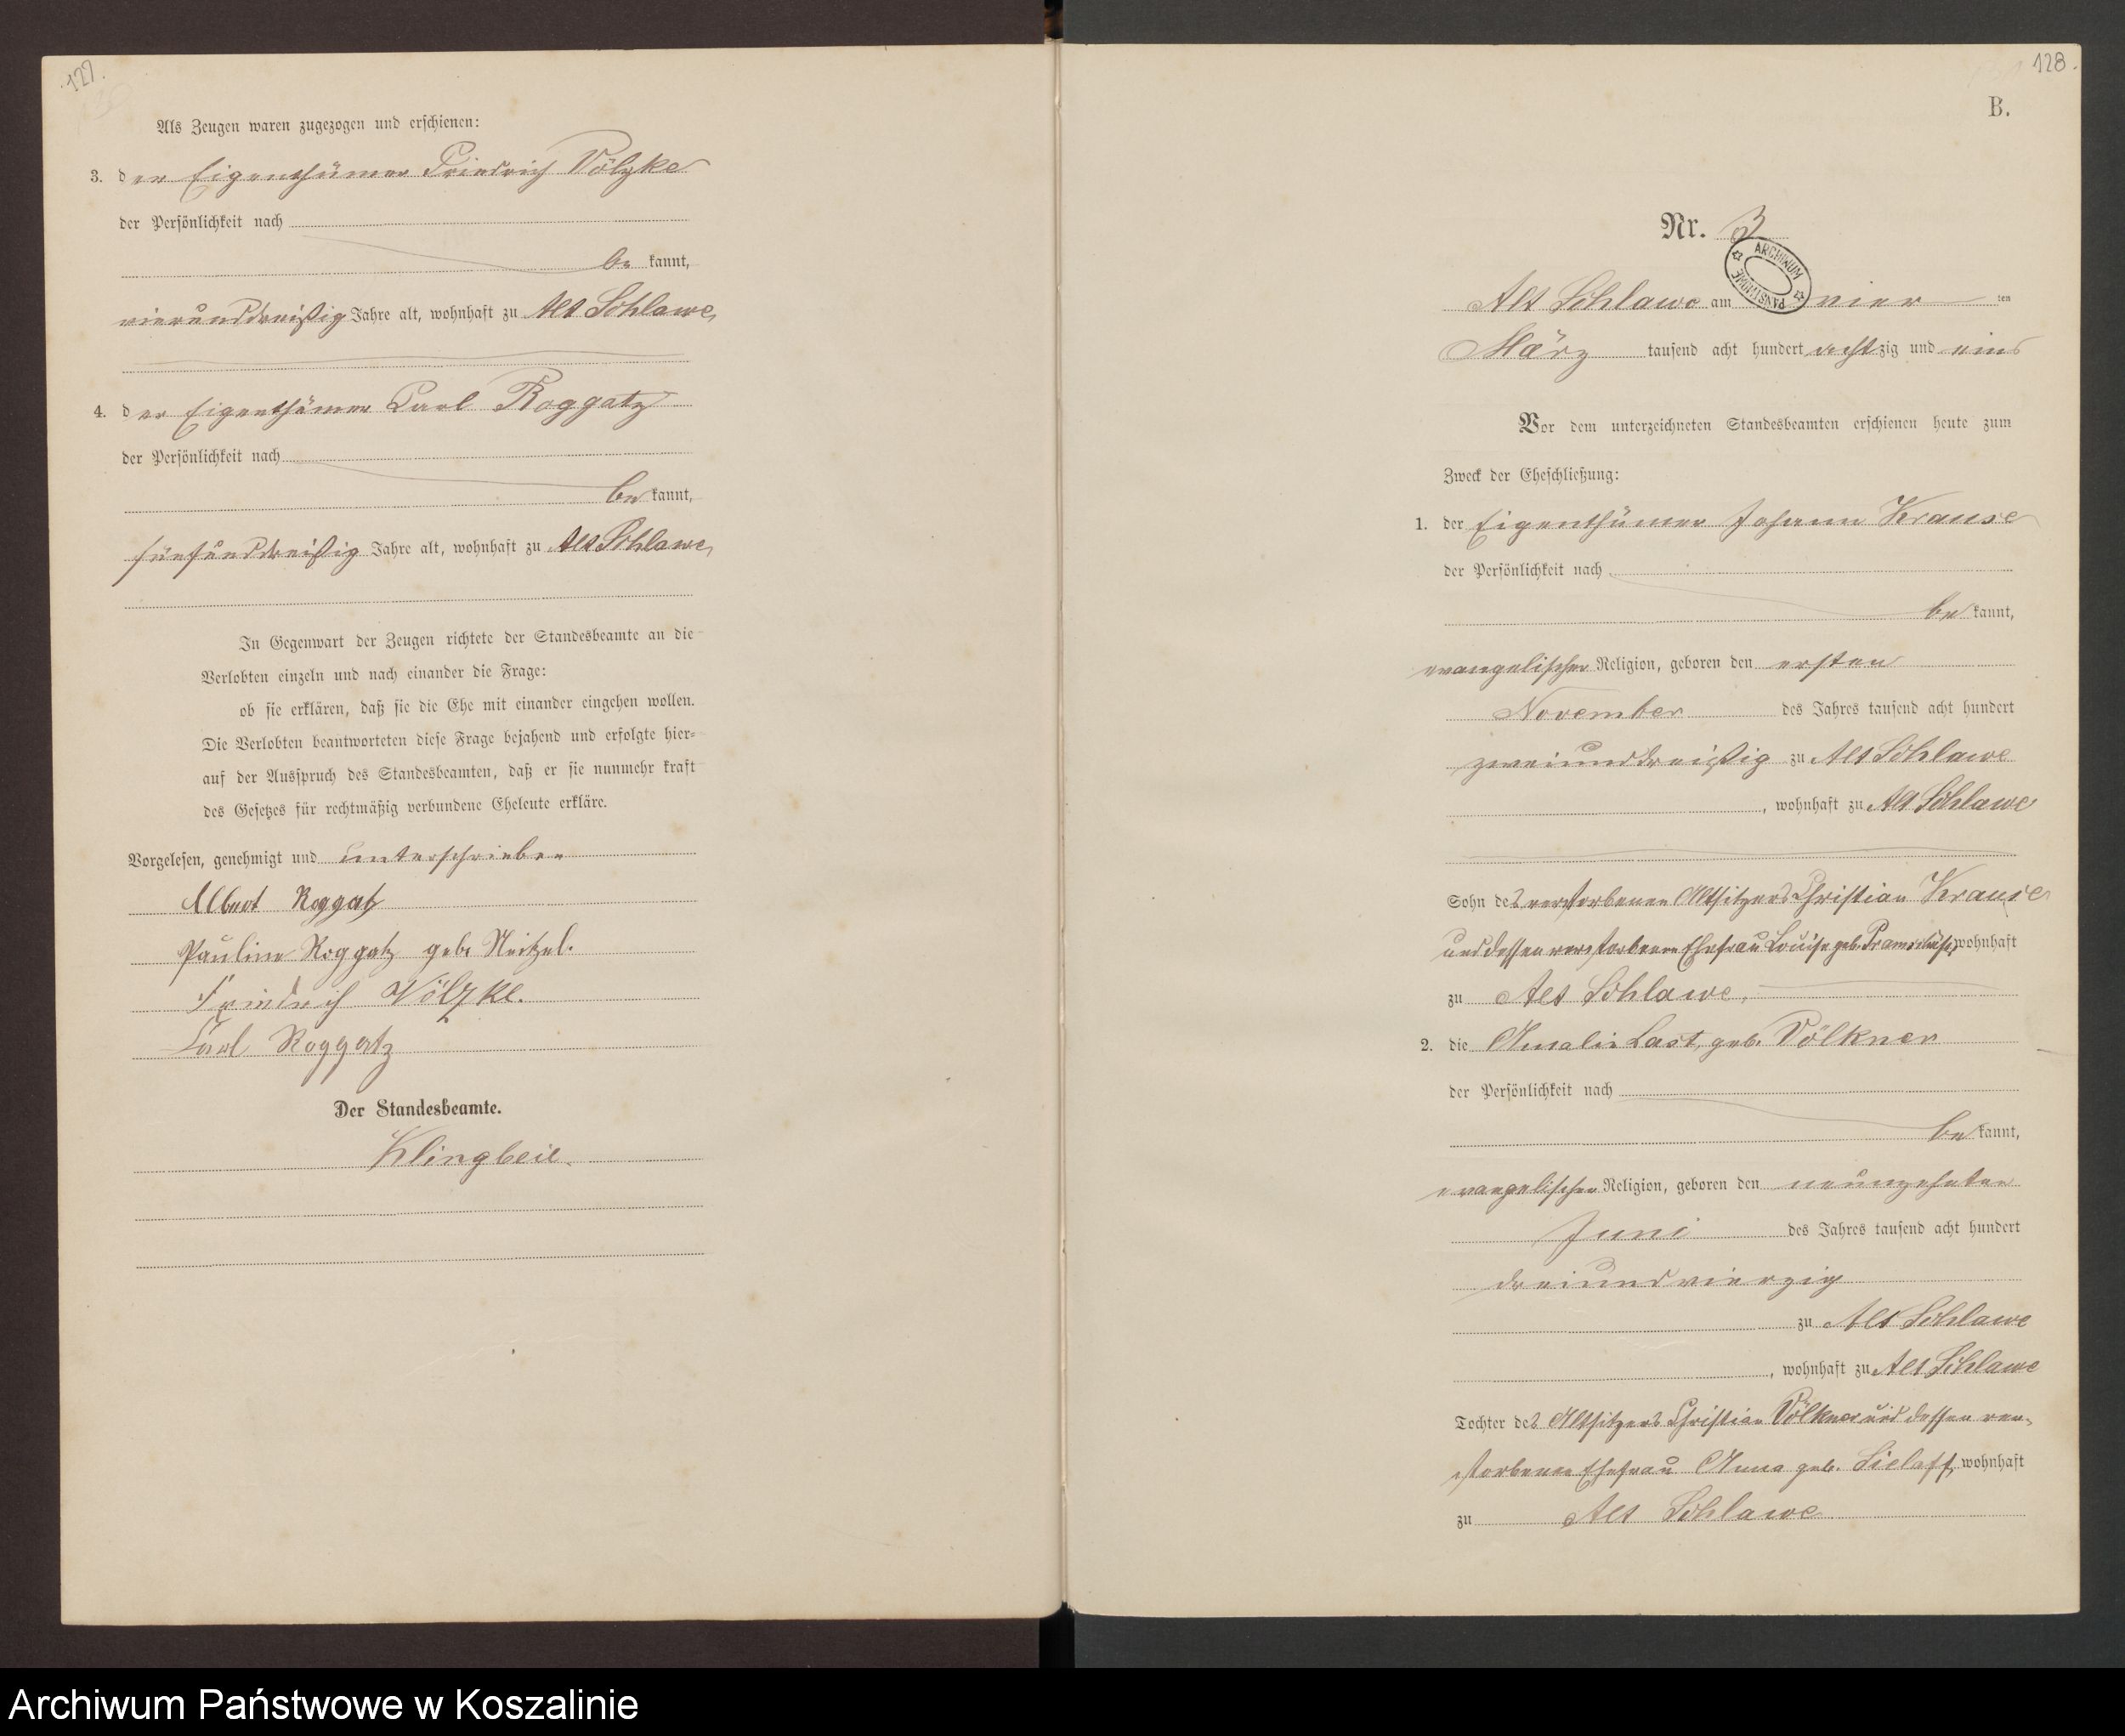 127.
Als Zeugen waren zugezogen und erschienen:
3. der Eigenthümer Friedrich Völzke
der Persönlichkeit nach
bekannt,
vierunddreißig Jahre alt, wohnhaft zu Alt Schlawe,
4. der Eigenthümer Carl Roggatz
der Persönlichkeit nach
bekannt,
fünfunddreißig Jahre alt, wohnhaft zu Alt Schlawe,
In Gegenwart der Zeugen richtete der Standesbeamte an die
Verlobten einzeln und nach einander die Frage:
ob sie erklären, daß sie die Ehe mit einander eingehen wollen.
Die Verlobten beantworteten diese Frage bejahend und erfolgte hier-
auf der Ausspruch des Standesbeamten, daß er sie nunmehr kraft
des Gesetzes für rechtmäßig verbundene Eheleute erkläre.
Vorgelesen, genehmigt und unterschrieben
Albert Roggatz
Pauline Roggatz geb. Neitzel.
Friedrich Völzke.
Carl Roggatz
Der Standesbeamte.
Klingbeil.
128.
B.
Nr. 3
ARCHIWUM PAŃSTWOWE
Alt Schlawe am vier ten
März tausend acht hundert achtzig und eins
Vor dem unterzeichneten Standesbeamten erschienen heute zum
Zweck der Eheschließung:
1. der Eigenthümer Johann Krause
der Persönlichkeit nach
bekannt,
evangelischer Religion, geboren den ersten
November des Jahres tausend acht hundert
zweiunddreißig zu Alt Schlawe
, wohnhaft zu Alt Schlawe
Sohn des verstorbenen Altsitzers Christian Krause
und dessen verstorbenen Ehefrau Louise geb. wohnhaft
zu Alt Schlawe,
2. die Amalie Last, geb. Völkner
der Persönlichkeit nach
bekannt,
evangelischer Religion, geboren den neunzehnten
Juni des Jahres tausend acht hundert
dreiundvierzig
zu Alt Schlawe
, wohnhaft zu Alt Schlawe
Tochter des Altsitzers Christian Völkner und dessen ver-
storbenen Ehefrau Anna geb. Sielaff, wohnhaft
zu Alt Schlawe
Archiwum Państwowe w Koszalinie